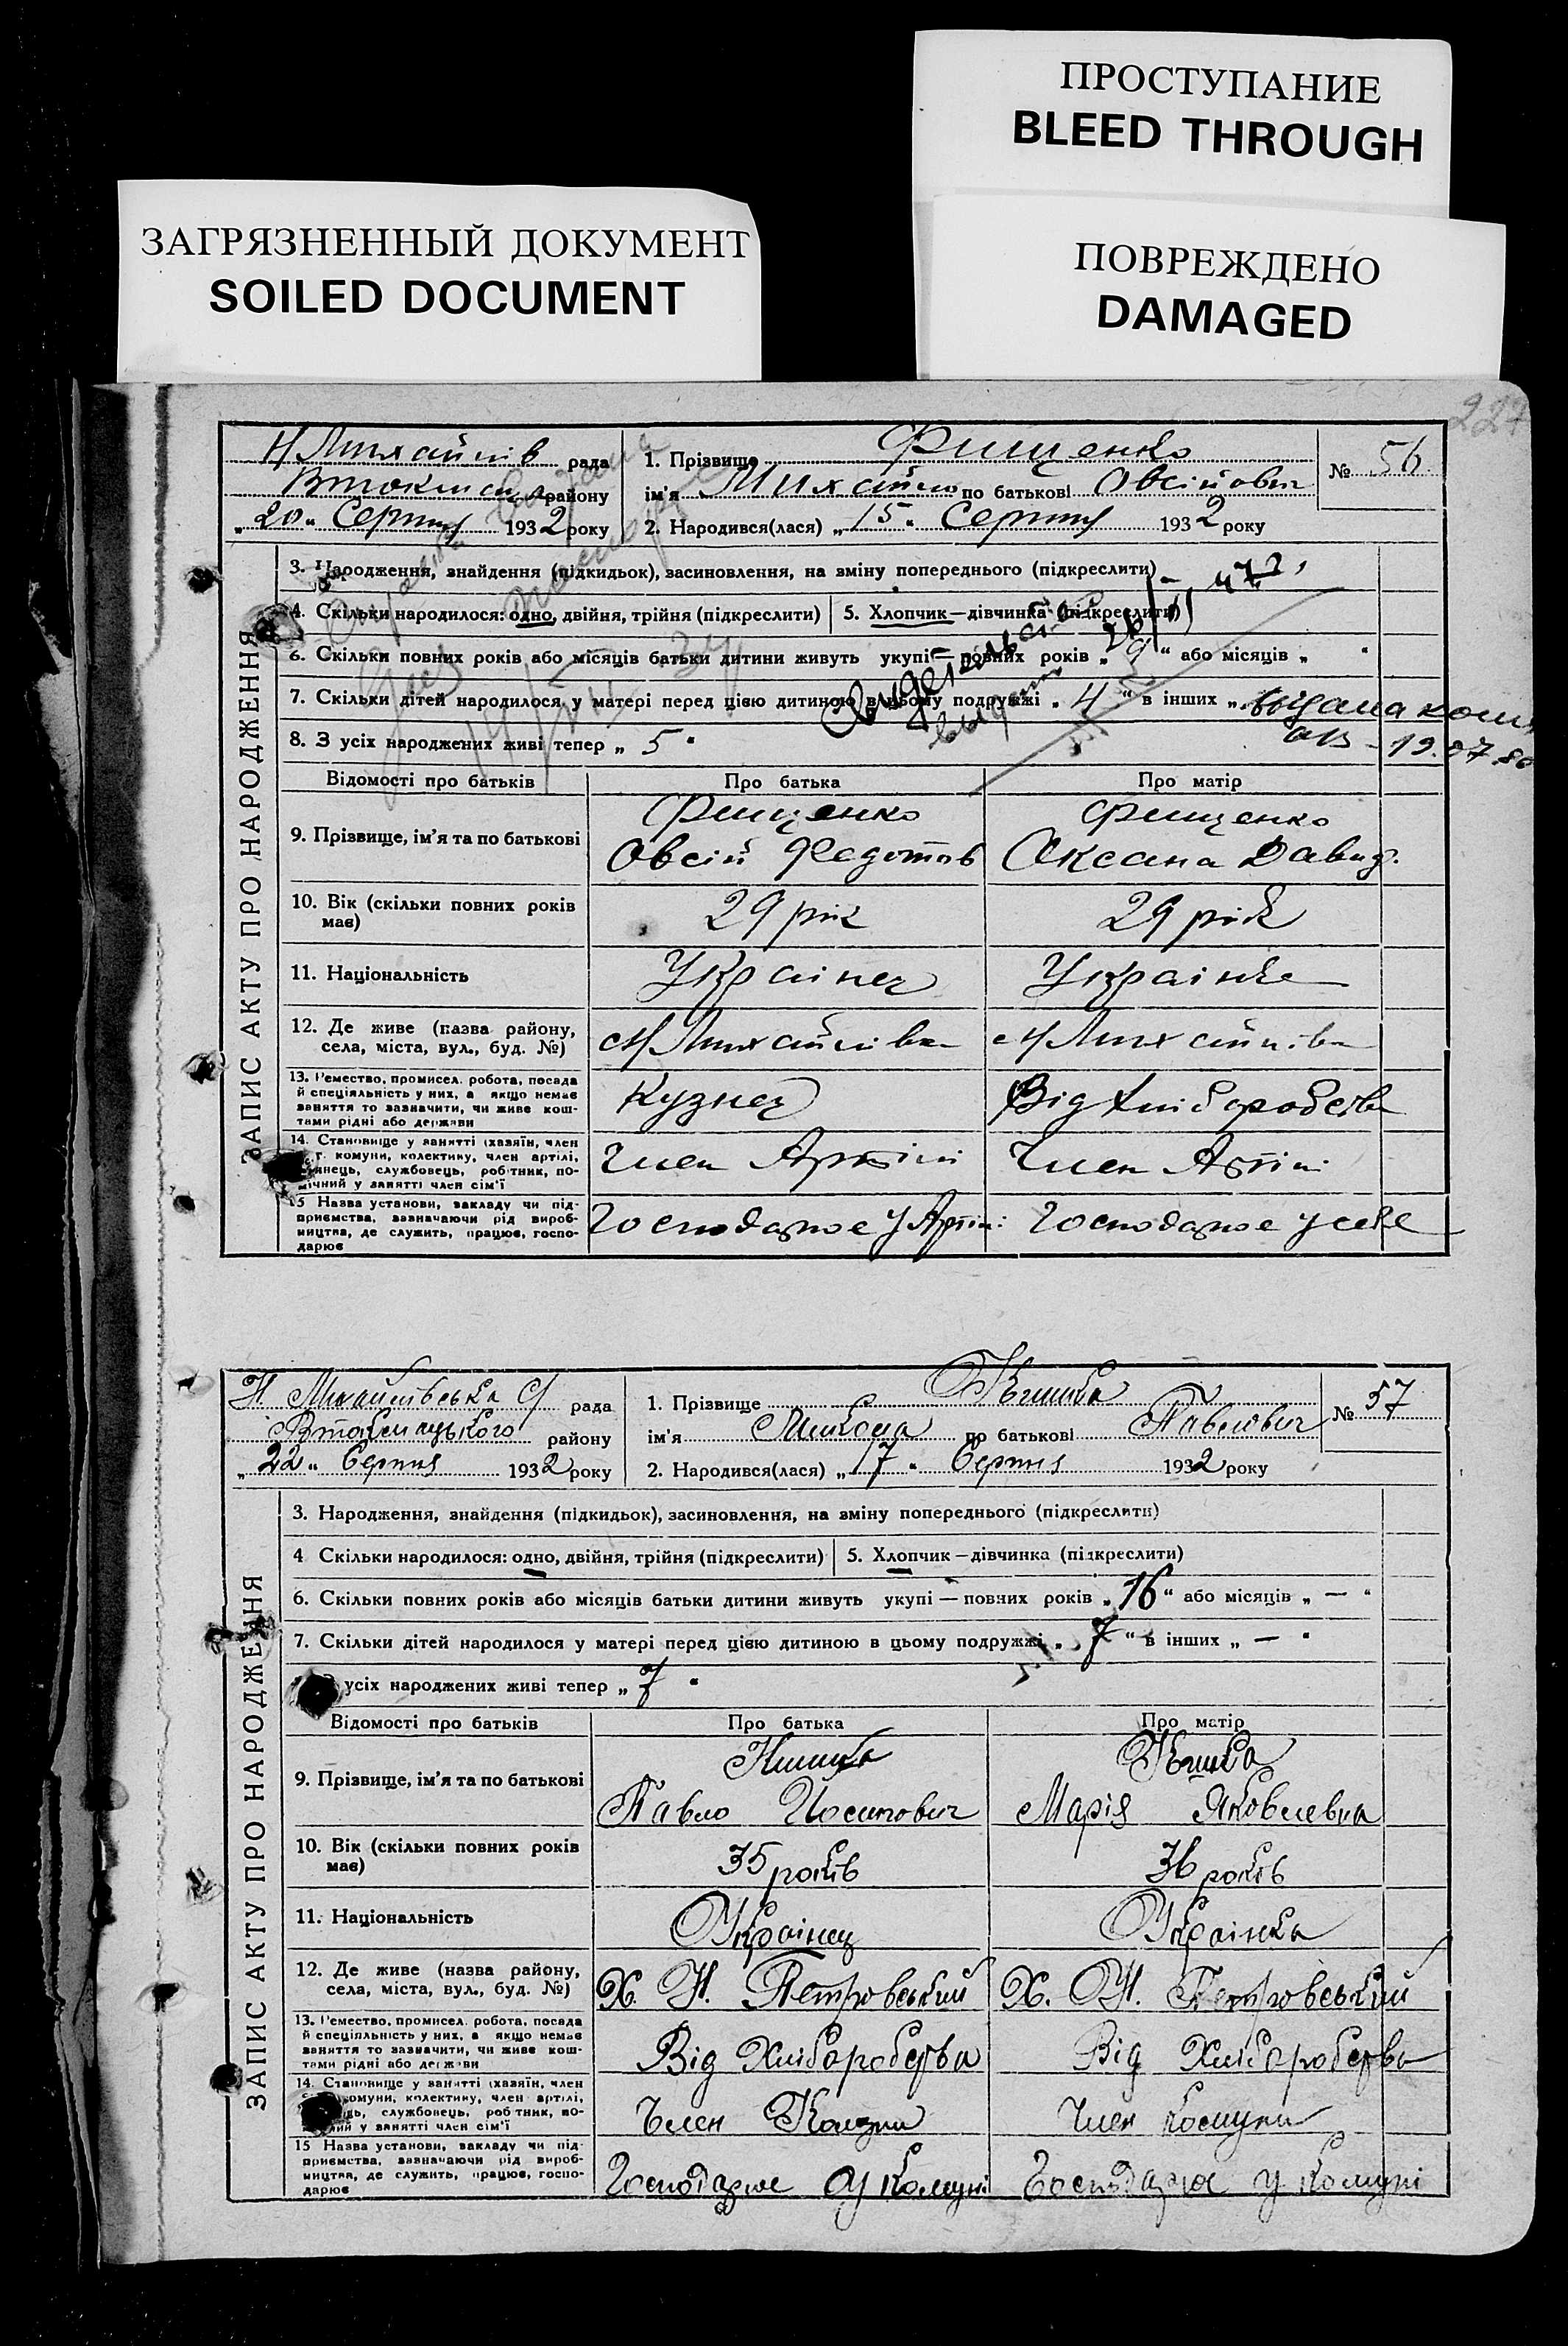 ПРОСТУПАНИЕ
BLEED THROUGH
ЗАГРЯЗНЕННЫЙ ДОКУМЕНТ
SOILED DOCUMENT
ПОВРЕЖДЕНО
DAMAGED
227
Н Михайлів рада
району
„20“ Серпня 1932 року
1. Прізвище Фищенко
ім'я Михайло по батькові Овсійович
2. Народився(лася) „15“ Серпня 1932 року
№ 56
ЗАПИС АКТУ ПРО НАРОДЖЕННЯ
3. Народження, знайдення (підкидьок), засиновлення, на зміну попереднього (підкреслити)
4. Скільки народилося: одно, двійня, трійня (підкреслити) 5. Хлопчик—дівчинка (підкреслити)
6. Скільки повних років або місяців батьки дитини живуть укупі — повних років „9“ або місяців „ “
7. Скільки дітей народилося у матері перед цією дитиною в цьому подружжі „4“ в інших „
выдана
8. З усіх народжених живі тепер „5“
19.07.80
Відомості про батьків Про батька Про матір
9. Прізвище, ім'я та по батькові
Фищенко Овсій Федотов
Фищенко Оксана Давид.
10. Вік (скільки повних років має) 29 рік 29 рік
11. Національність Українец Українка
12. Де живе (назва району, села, міста, вул., буд. №) Н Михайлівка Н Михайлівка
13. Ремество, промисел, робота, посада й спеціяльність у них, а якщо немає заняття то зазначити, чи живе коштами рідні або держави
Кузнец Від Хліборобства
14. Становище у занятті (хазяїн, член с.г. комуни, колективу, член артілі, службовець, робітник, помічний у занятті член сім'ї
Член Артілі Член Артілі
15 Назва установи, закладу чи підприємства, зазначаючи рід виробництва, де служить, працює, господарює
Господарює у Артіл: Господарює у себе
Н. Михайлівська С/ рада
району
„22“ Серпня 1932 року
1. Прізвище Кишка
ім'я Микола по батькові Павлович
2. Народився(лася) „17“ Серпня 1932 року
№ 57
ЗАПИС АКТУ ПРО НАРОДЖЕННЯ
3. Народження, знайдення (підкидьок), засиновлення, на зміну попереднього (підкреслити)
4 Скільки народилося: одно, двійня, трійня (підкреслити) 5. Хлопчик—дівчинка (підкреслити)
6. Скільки повних років або місяців батьки дитини живуть укупі — повних років „16“ або місяців „ — “
7. Скільки дітей народилося у матері перед цією дитиною в цьому подружжі „7“ в інших „ — “
усіх народжених живі тепер „7“
Відомості про батьків Про батька Про матір
9. Прізвище, ім'я та по батькові
Кишка Павло Йосипович
Кишка Марія Яковлевна
10. Вік (скільки повних років має) 35 років 36 років
11. Національність Українец Українка
12. Де живе (назва району, села, міста, вул., буд. №) Х. Н. Петровський Х. Н. Петровський
13. Ремество, промисел, робота, посада й спеціяльність у них, а якщо немає заняття то зазначити, чи живе коштами рідні або держави
Від Хліборобства Від Хліборобства
14. Становище у занятті (хазяїн, член комуни, колективу, член артілі, службовець, робітник, член сім'ї
Член Комуни Член Комуни
15 Назва установи, закладу чи підприємства, зазначаючи рід виробництва, де служить, працює, господарює
Господарює у Комуні Господарює у Комуні